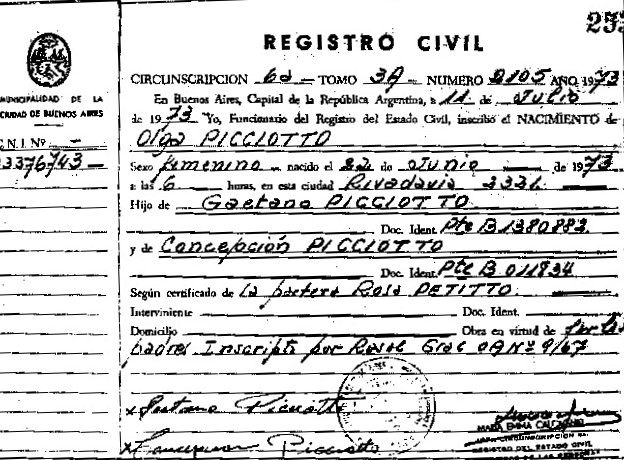 233
REGISTRO CIVIL
MUNICIPALIDAD DE LA
CIUDAD DE BUENOS AIRES
CIRCUNSCRIPCION 6a TOMO 3A NUMERO 2105 AÑO 1973
En Buenos Aires, Capital de la República Argentina, a 11 de Julio
de 1973 Yo, Funcionario del Registro del Estado Civil, inscribió el NACIMIENTO de
Olga PICCIOTTO
C.N.I. Nº
23376743
Sexo femenino nacido el 22 de Junio de 1973
a las 6 horas, en esta ciudad Rivadavia 3331
Hijo de Gaetano PICCIOTTO
Doc. Ident. Pte B 1380883
y de Concepción PICCIOTTO
Doc. Ident. Pte B 011834
Según certificado de la partera Rosa PETITTO
Interviniente Doc. Ident.
Domicilio Obra en virtud de ser los
padres Inscripto por Resol. Gral OA Nº 9/67
x Gaetano Picciotto
x Concepcion Picciotto
MARIA EMMA
CIRCUNSCRIPCION
REGISTRO DEL ESTADO CIVIL